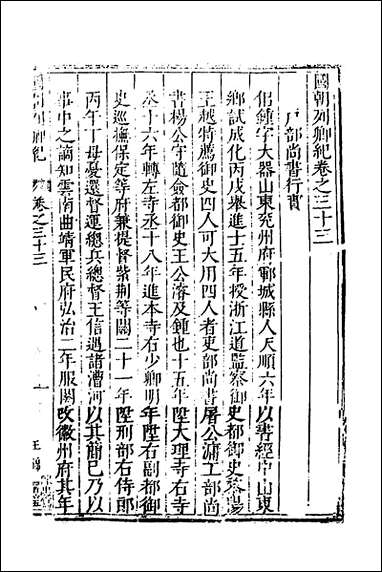 國朝列卿紀卷之三十三
戶部尚書行實
侶鍾字大器山東兖州府鄆城縣人天順六年以書經中山東
鄉試成化丙戌舉進士十五年授浙江道監察御史都御史
王越特薦御史四人可大用四人者吏部尚書屠公滽工部尚
書楊公守隨僉都御史王公濬及鍾也十五年陞大理寺右寺
丞十六年轉左寺丞十八年進本寺右少卿明年陞右副都御
史巡撫保定等府兼提督紫荆等關二十一年陞刑部右侍郎
丙午丁母憂還督運總兵總督王信過諸漕河以其簡已乃以
事中之謫知雲南曲靖軍民府弘治二年服闋改徽州府其年
國朝列卿紀
卷之三十三
一